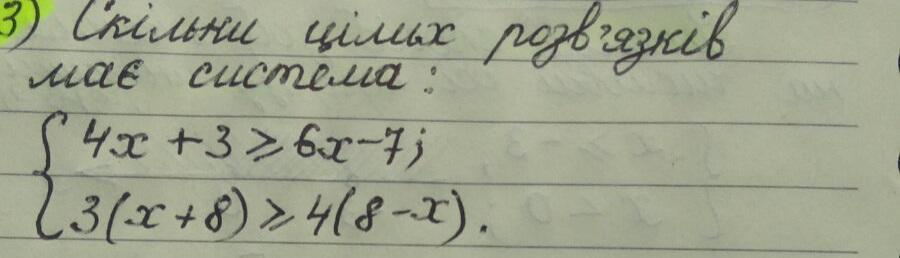 3) Скільки цілих розв'язків
має система:
4x + 3 ⩾ 6x - 7;
3(x + 8) ⩾ 4(8 - x).